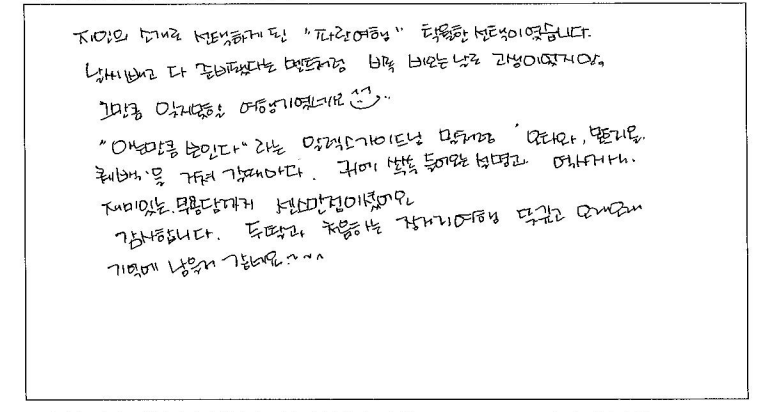 지인의 소개로 선택하게 된 "파란여행" 탁월한 선택이였습니다.
날씨빼고 다 준비됐다는 멘트처럼 비록 비오는날로 고생이였지만,
그만큼 잊지못할 여행기였네요
"아는만큼 보인다" 라는 알렉스가이드님 말처럼 오타와, 몬트리올
퀘백,을 거쳐 갈때마다. 귀에 쏙쏙 들어오는 설명과 역사에서.
재미있는.무용담에게 센스만점이셨어요
감사합니다. 두딸과, 처음하는 장거리여행 뜻깊고 오래오래
기억에 남을거 같네요~~~